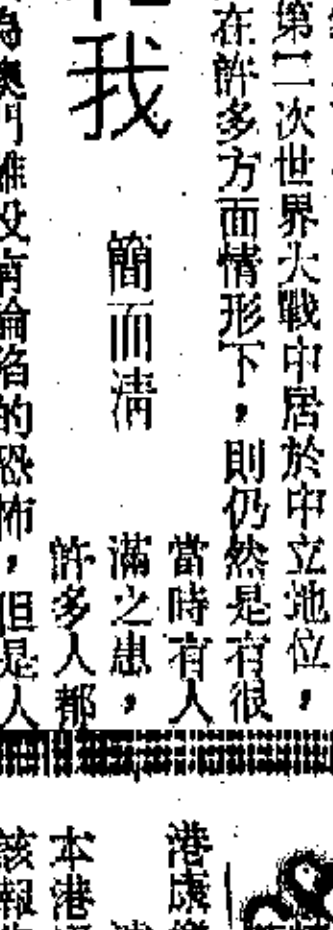 第二次世界大戰中居於中立地位，
在許多方面情形下，則仍然是有很
當時有人
滿之患，
許多人都
我
簡而清
為澳門雖沒有淪陷的恐怖，但是人
港康樂
本港
該報